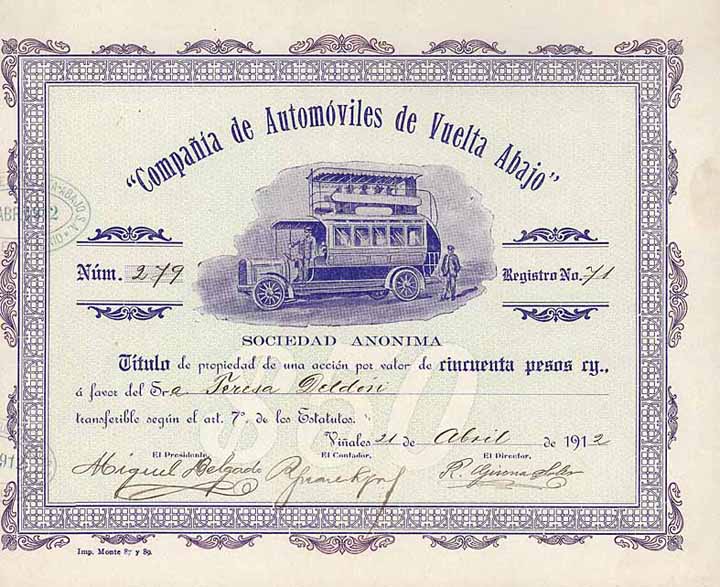 "Compañía de Automóviles de Vuelta Abajo"
ABR 1912
Núm. 279
Registro No. 71
SOCIEDAD ANONIMA
Título de propiedad de una acción por valor de cincuenta pesos cy.,
á favor del Sra. Teresa
transferible según el art. 7º. de los Estatutos.
Viñales 21 de Abril de 1912
El Presidente, El Contador, El Director,
Miguel Delgado
Imp. Monte 87 y 89.